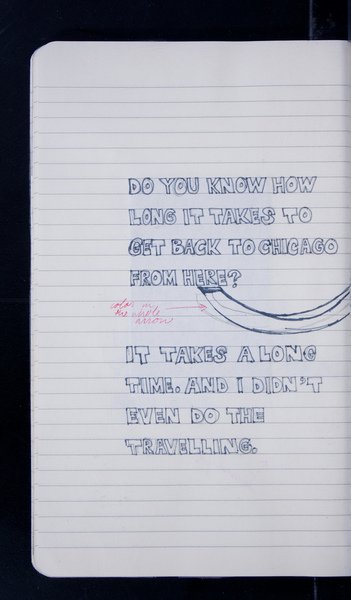 DO YOU KNOW HOW
LONG IT TAKES TO
GET BACK TO CHICAGO
FROM HERE?
color in
the whole
arrow
IT TAKES A LONG
TIME. AND I DIDN'T
EVEN DO THE
TRAVELLING.